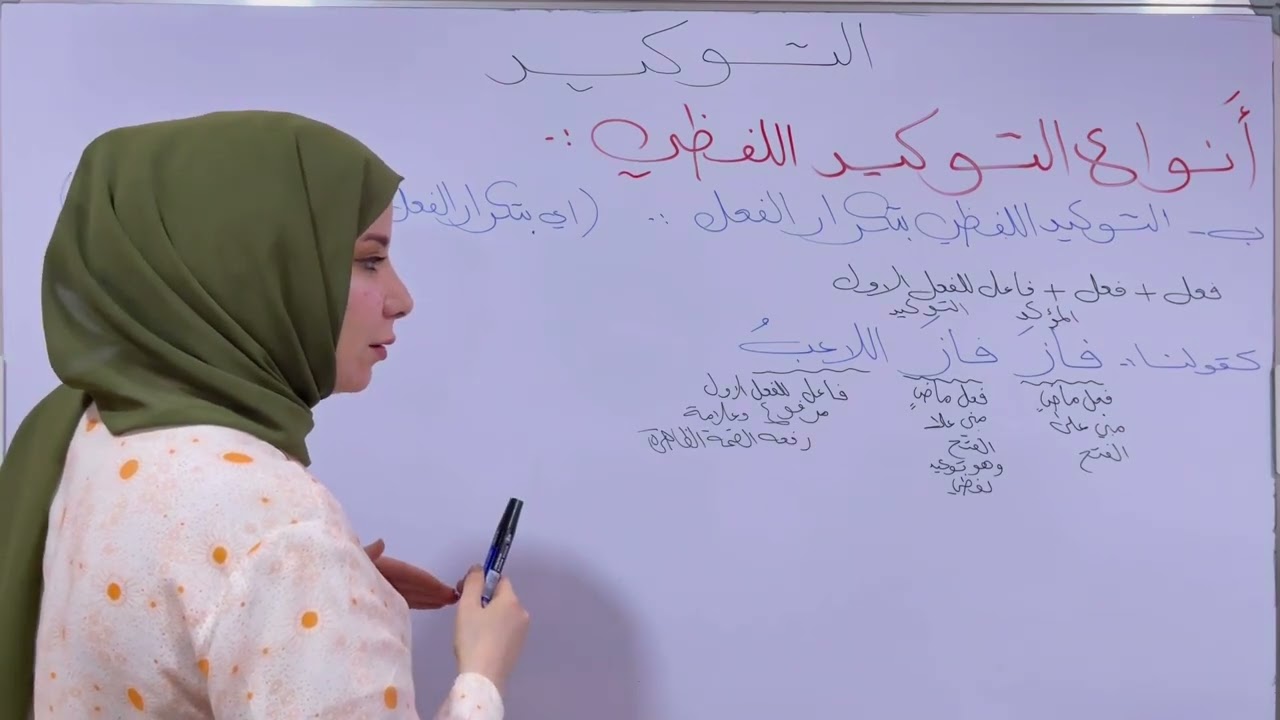 التوكيد
أنواع التوكيد اللفظي :-
ب- التوكيد اللفظي بتكرار الفعل :- (اي بتكرار الفعل
فعل + فعل + فاعل للفعل الاول
المؤكد التوكيد
كقولنا :- فازَ فازَ اللاعبُ
فعل ماضٍ فعل ماضٍ فاعل للفعل الاول
مبني على مبني علا مرفوع وعلامة
الفتح الفتح رفعه الضمة الظاهرة
وهو توكيد
لفظي